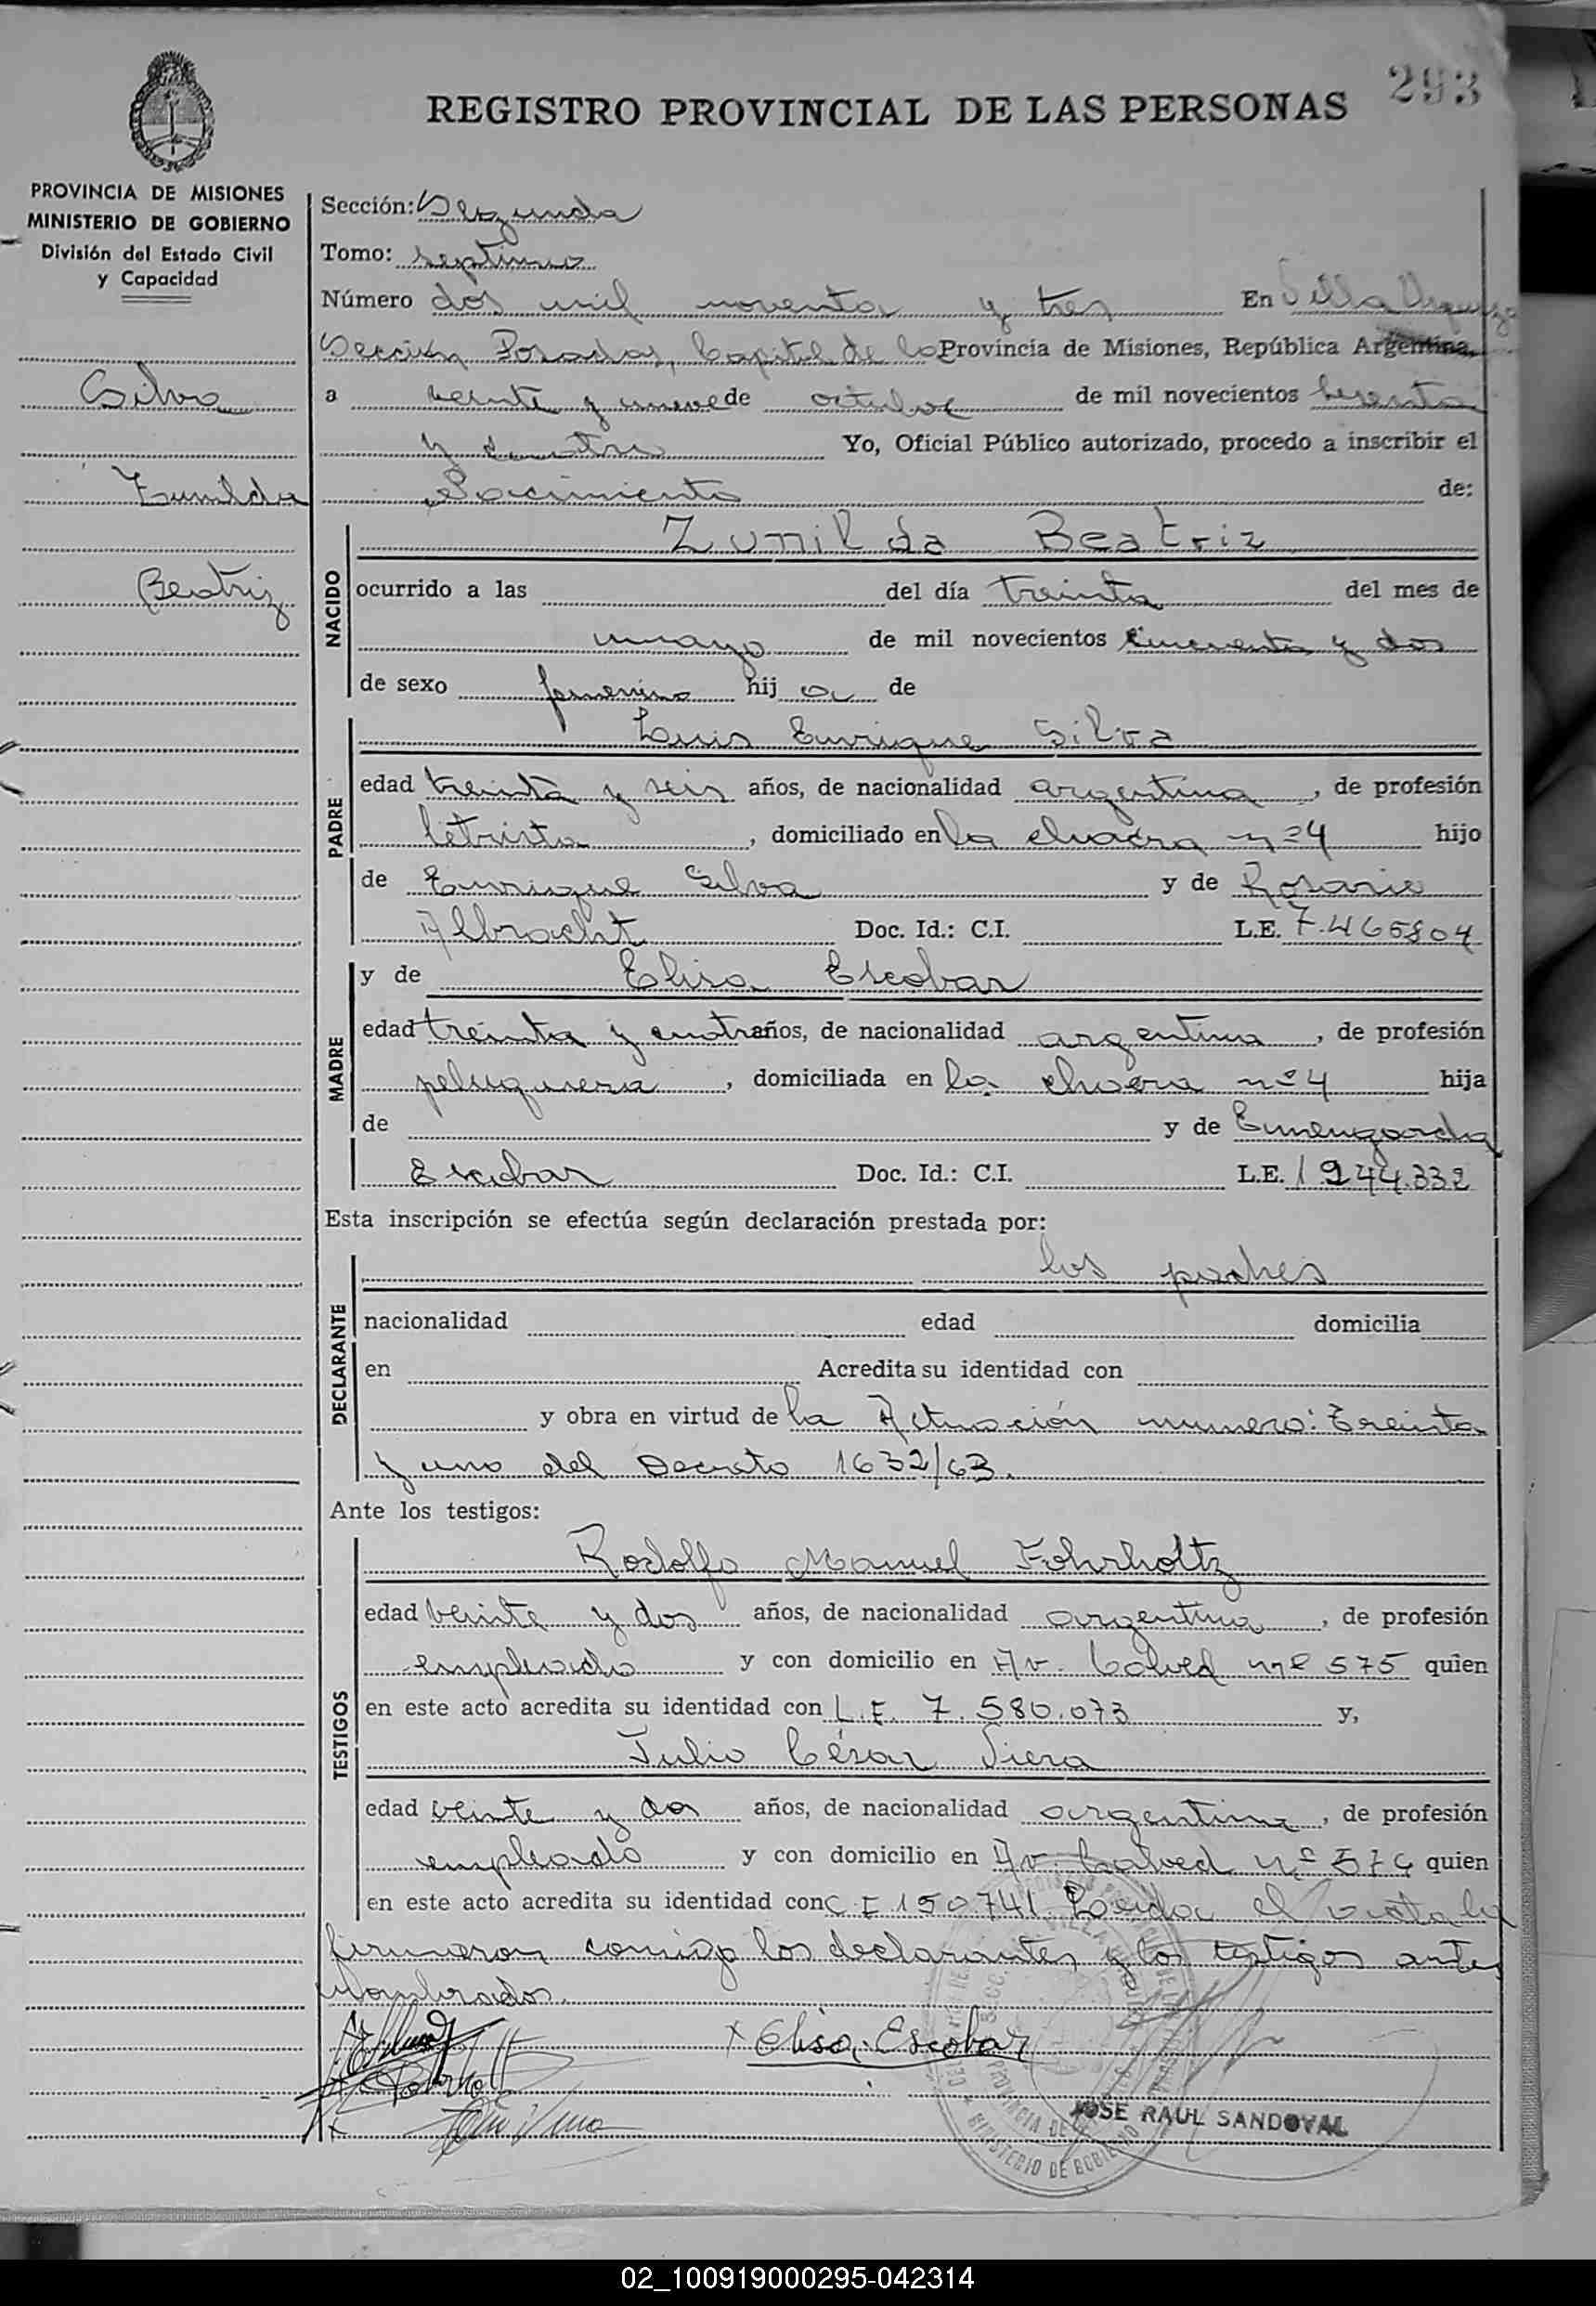 293
REGISTRO PROVINCIAL DE LAS PERSONAS
PROVINCIA DE MISIONES
MINISTERIO DE GOBIERNO
División del Estado Civil
y Capacidad
Silva
Zunilda
Beatriz
Sección: Segunda
Tomo: septimo
Número dos mil noventa y tres En Villa Urquiza
Sección Posadas, Capital de la Provincia de Misiones, República Argentina,
a veinte y nueve de octubre de mil novecientos
y cuatro Yo, Oficial Público autorizado, procedo a inscribir el
Nacimiento de:
NACIDO
Zunilda Beatriz
ocurrido a las del día treinta del mes de
mayo de mil novecientos cincuenta y dos
de sexo femenino hij a de
PADRE
Luis Enrique Silva
edad treinta y seis años, de nacionalidad argentina, de profesión
letrista, domiciliado en la chacra nº 4 hijo
de Enrique Silva y de Rosario
Albracht Doc. Id.: C.I. L.E. 7.465804
MADRE
y de Elisa Escobar
edad treinta y cuatro años, de nacionalidad argentina, de profesión
peluquera, domiciliada en la chacra nº 4 hija
de y de
Escobar Doc. Id.: C.I. L.E. 1944.332
Esta inscripción se efectúa según declaración prestada por:
DECLARANTE
los padres
nacionalidad edad domicilia
en Acredita su identidad con
y obra en virtud de la Actuación numero: treinta
y uno del Decreto 1632/63.
Ante los testigos:
TESTIGOS
Rodolfo Manuel Fohrholtz
edad veinte y dos años, de nacionalidad argentina, de profesión
empleado y con domicilio en Av. nº 575 quien
en este acto acredita su identidad con L.E. 7.580.073 y,
Julio César Viera
edad veinte y dos años, de nacionalidad argentina, de profesión
empleado y con domicilio en Av. nº quien
en este acto acredita su identidad con C I 150741 Leida el acta la
firmaron conmigo los declarantes y los testigos antes
Nombrados.
x Elisa Escobar
JOSE RAUL SANDOVAL
MINISTERIO DE GOBIERNO
02_100919000295-042314